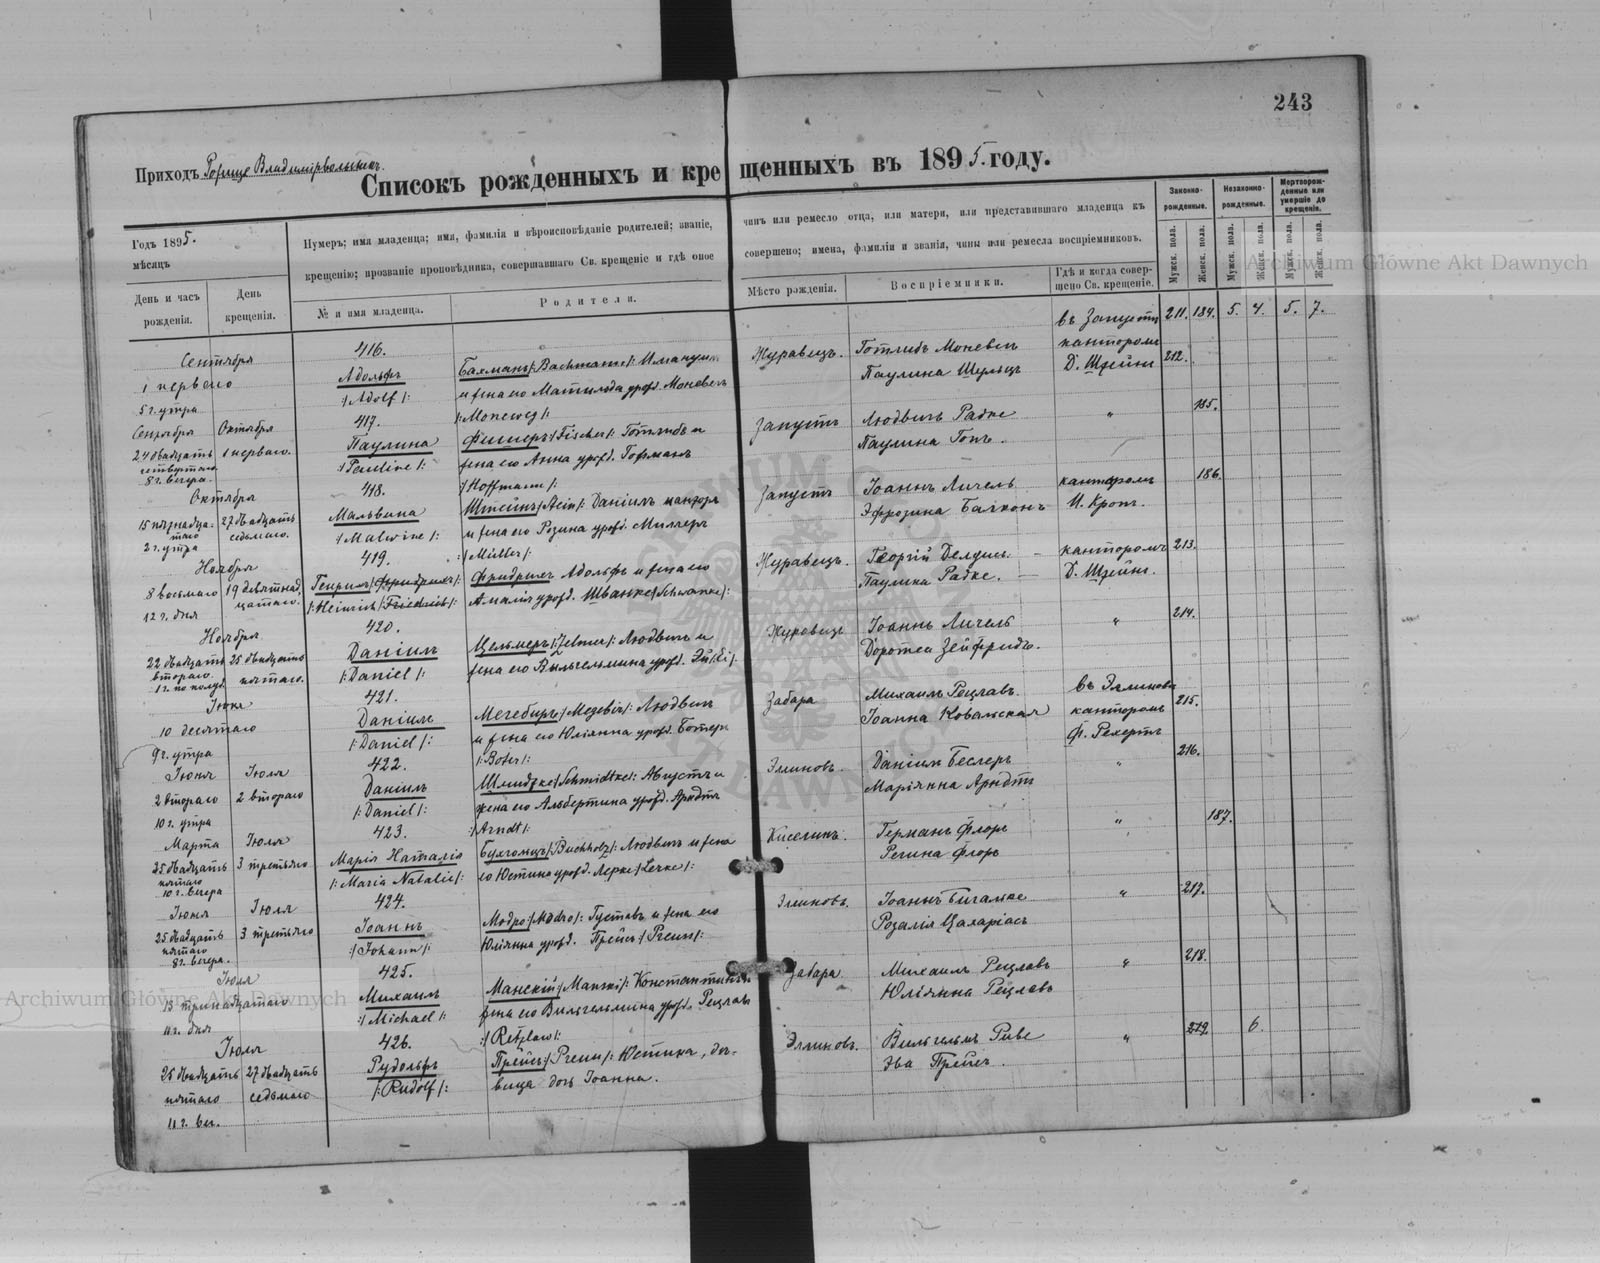 243
Приходъ Рожище Владимірволынск.
Списокъ рожденныхъ и крещенныхъ въ 1895. году.
Годъ 1895.
мѣсяцъ
Нумеръ; имя младенца; имя, фамилія и вѣроисповѣданіе родителей; званіе, чинъ или ремесло отца, или матери, или представившаго младенца къ
крещенію; прозваніе проповѣдника, совершавшаго Св. крещеніе и гдѣ оное совершено; имена, фамиліи и званія, чины или ремесла воспріемниковъ.
Законно-рожденные.
Незаконно-рожденные.
Мертворожденные или умершіе до крещенія.
День и часъ рожденія.
День крещенія.
№ и имя младенца.
Родители.
Мѣсто рожденія.
Воспріемники.
Гдѣ и когда совершено Св. крещеніе.
Мужск. пола.
Женск. пола.
Мужск. пола.
Женск. пола.
Мужск. пола.
Женск. пола.
211. 184. 5. 4. 5. 7.
Сентября
1 перваго
5 г. утра
416.
Адольфъ
/: Adolf :/
Бахманъ /: Bachmann :/
и жена его Матильда урожд. Моневегъ
/: Moneweg :/
Журавецъ.
Готлибъ Моневегъ
Паулина Шульцъ
въ Запустъ
канторомъ
Д. Штейн
212.
Сентября
24 двадцать
четвертаго
8 г. вечера.
Октября
1 перваго.
417.
Паулина
/: Pauline :/
Фишеръ /: Fischer :/ Готлибъ и
жена его Анна урожд. Гофманъ
/: Hoffmann :/
Запустъ
Людвигъ Радке
Паулина Гопъ.
"
185.
Октября
15 пятнадцатаго
2 г. утра
27 двадцать
седьмаго.
418.
Мальвина
/: Malwine :/
Штейнъ /: Stein :/ Даніилъ канторъ
и жена его Розина урожд. Миллеръ
/: Müller :/
Запустъ
Іоаннъ Личель
Эфрозина Бачконъ
канторомъ
И. Кропъ.
186.
Ноября
8 восьмаго
12 г. дня
19 девятнадцатаго.
419.
Генрихъ /: Фридрихъ :/
/: Heinrich /: Friedrich :/
Фридрихъ Адольфъ и жена его
Амалія урожд. Шванке /: Schwanke :/
Журавецъ.
Георгій Делуш.
Паулина Радке.
канторомъ
Д. Штейн.
213.
Ноября
22 двадцать
втораго.
1 г. по полуд.
25 двадцать
пятаго.
420.
Даніилъ
/: Daniel :/
Цельмеръ /: Zelmer :/ Людвигъ и
жена его Вильгельмина урожд. Эй /: Ei :/
Журавецъ
Іоаннъ Личель
Доротея Зейфридъ.
"
214.
Іюня
10 десятаго
9 г. утра
421.
Даніилъ
/: Daniel :/
Людвигъ
и жена его Юліянна урожд. Ботеръ
/: Boter :/
Забара
Михаилъ Рецлавъ.
Іоанна Ковальская
въ Эллиновъ
канторомъ
Ф. Рехертъ
215.
Іюня
2 втораго
10 г. утра
Іюля
2 втораго
422.
Даніилъ
/: Daniel :/
Шмидтке /: Schmidtke :/ Августъ и
жена его Альбертина урожд. Арндтъ
/: Arndt :/
Эллиновъ.
Даніилъ Беслеръ
Маріянна Арндтъ
"
216.
Марта
25 двадцать
пятаго
10 г. вечера
Іюля
3 третьяго
423.
Марія Наталія
/: Maria Natalie :/
Бухгольцъ /: Buchholz :/ Людвигъ и жена
его Юстина урожд. Лерке /: Lerke :/
Киселинъ.
Германъ Флоръ
Регина Флоръ
"
187.
Іюня
25 двадцать
пятаго
8 г. вечера.
Іюля
3 третьяго
424.
Іоаннъ
/: Johann :/
Модро /: Modro :/ Густавъ и жена его
Юліянна урожд. Прейсъ /: Preuss :/
Эллиновъ.
Іоаннъ Бигальке
Розалія Цахаріасъ
"
217.
Іюля
13 тринадцатаго
11 г. дня
425.
Михаилъ
/: Michael :/
Манскій /: Manski :/ Константинъ и
жена его Вильгельмина урожд. Рецлавъ
/: Retzlaw :/
Забара
Михаилъ Рецлавъ
Юліянна Рецлавъ
"
218.
Іюля
25 двадцать
пятаго
11 г. веч.
27 двадцать
седьмаго
426.
Рудольфъ
/: Rudolf :/
Прейсъ /: Preuss :/ Юстина, дѣ-
вица дочь Іоанна.
Эллиновъ.
Вильгельмъ Риве
Эва Прейсъ.
"
219.
6.
Archiwum Główne Akt Dawnych
Archiwum Główne Akt Dawnych